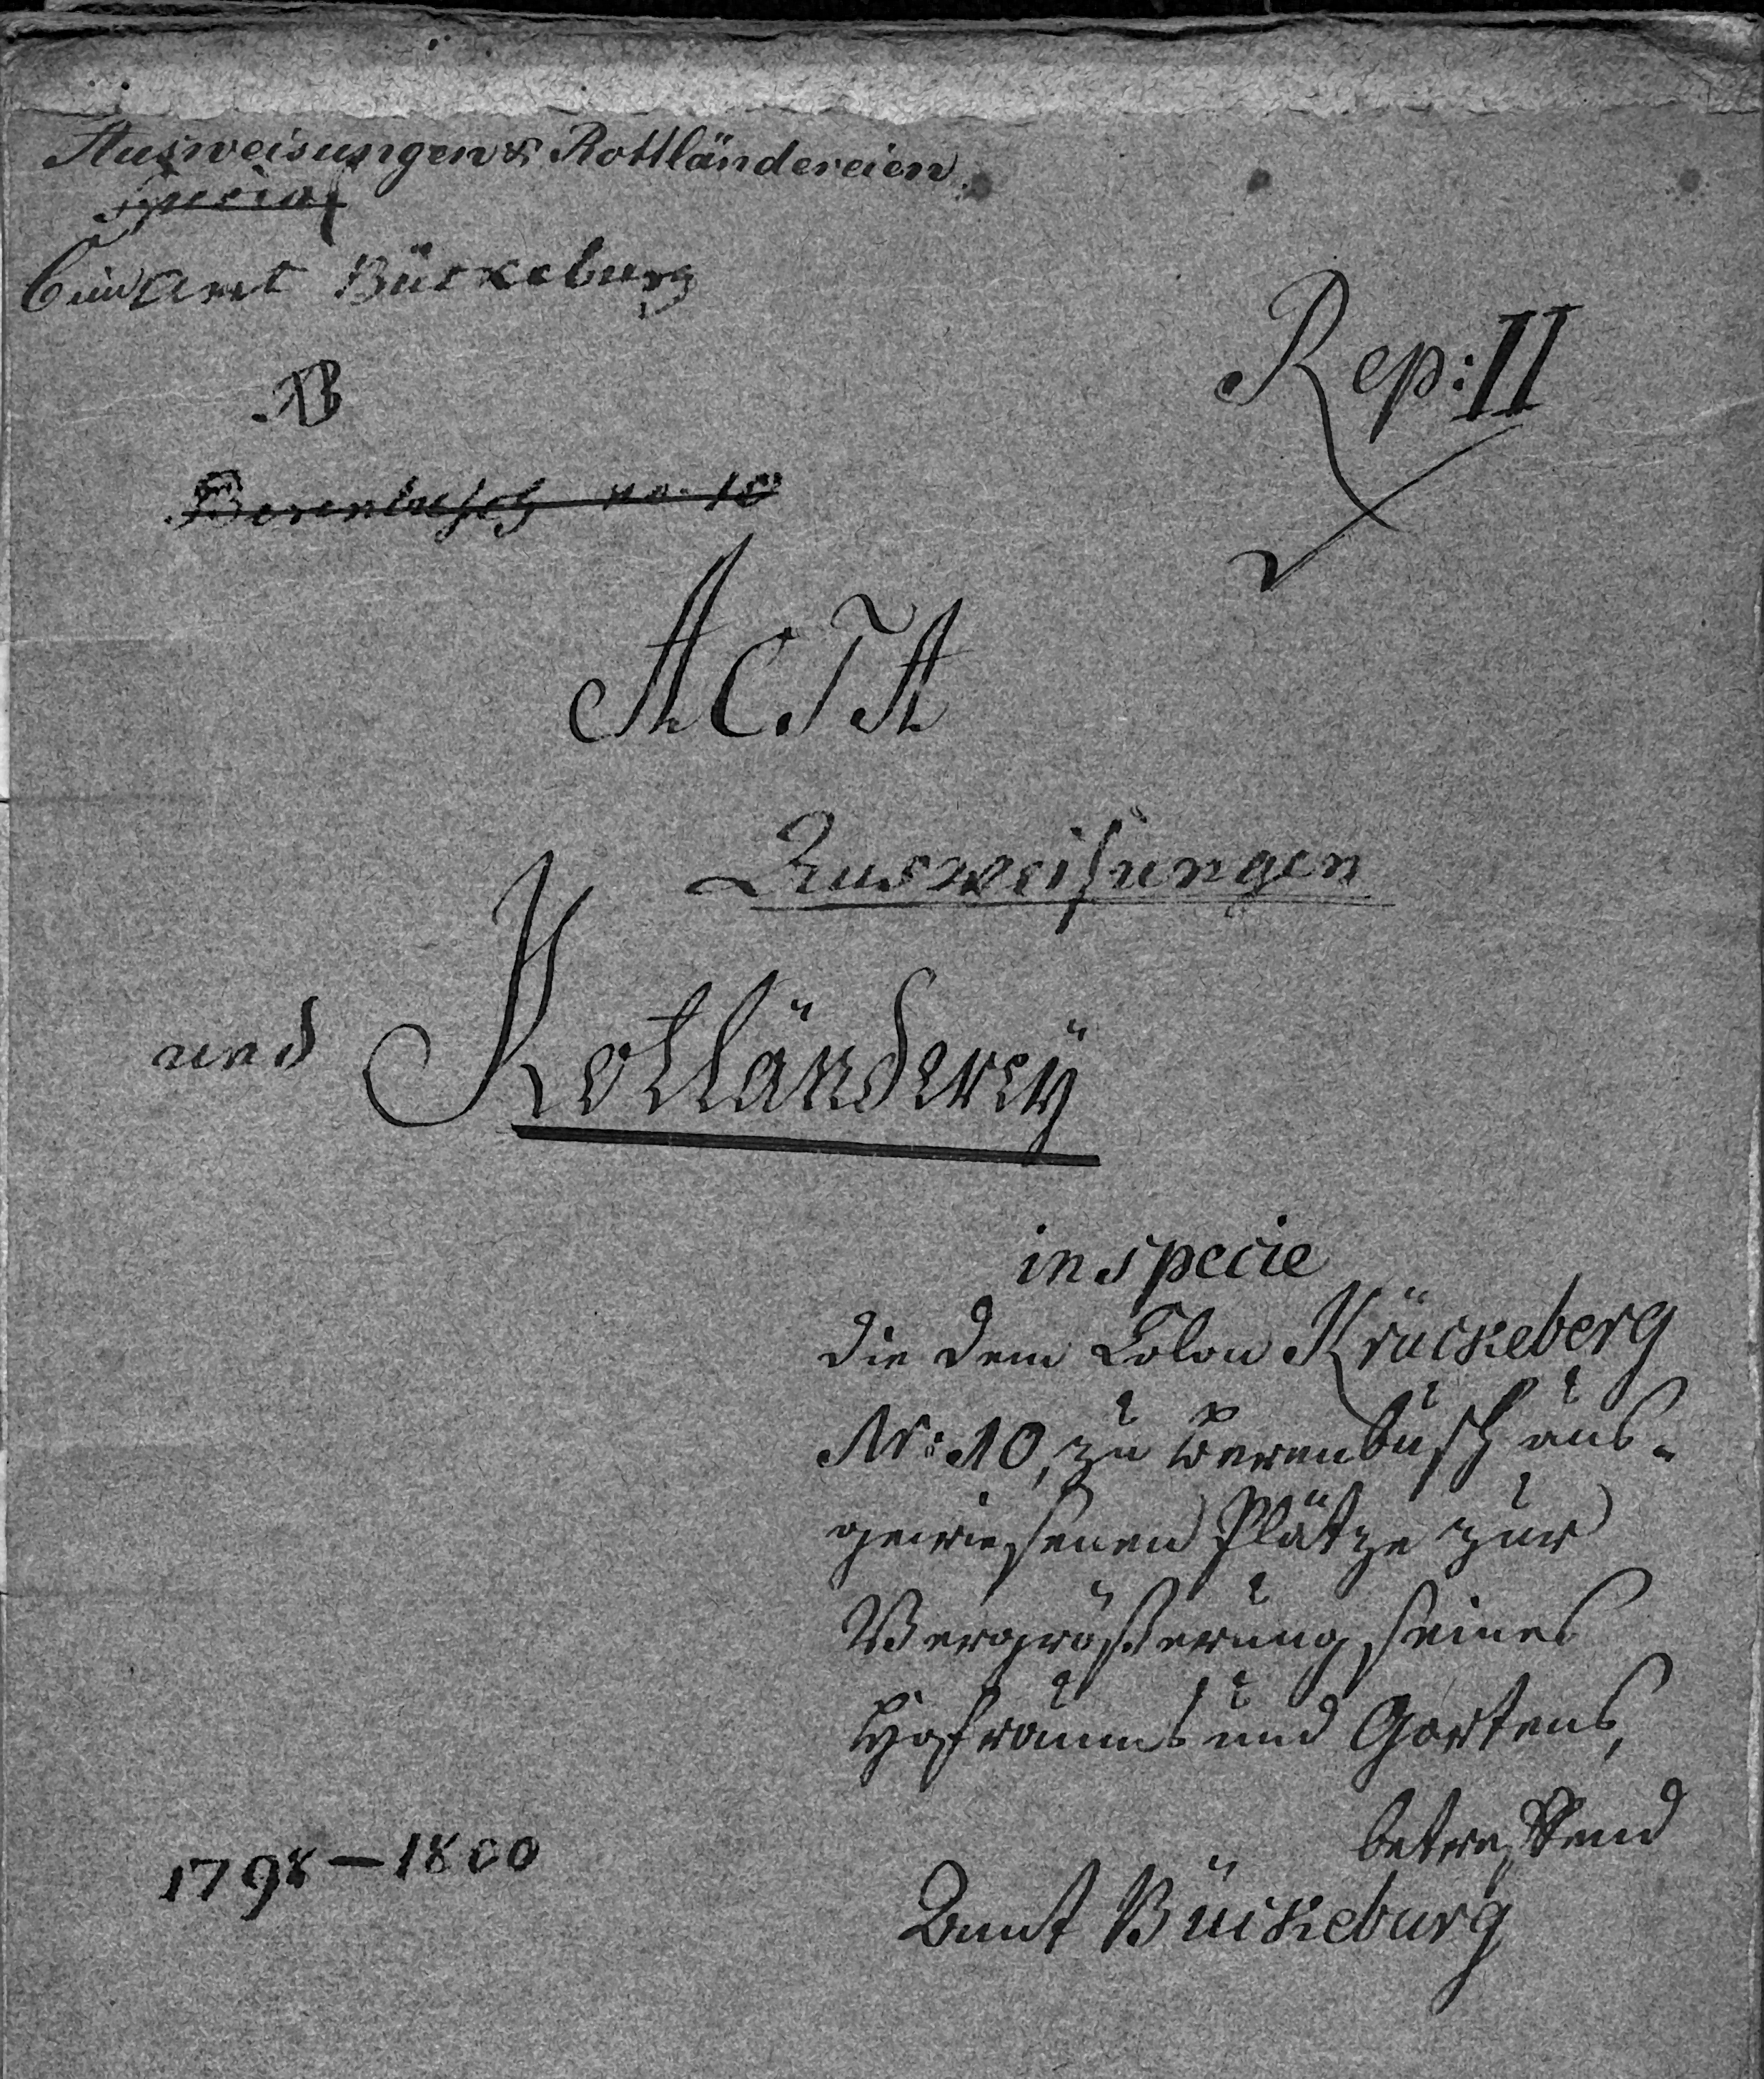 Ausweisungen & Rottländereien.
Special
Amt Bückeburg
B
Berenbusch no. 10
Rep: II
ACTA
Ausweisungen
und Rottländerey
in specie
die dem Colon Krückeberg
Nr: 10, zu Berenbusch aus-
gewiesenen Plätze zur
Vergrößerung seines
Hofraums und Gartens,
betreffend
1798 — 1800
Amt Bückeburg